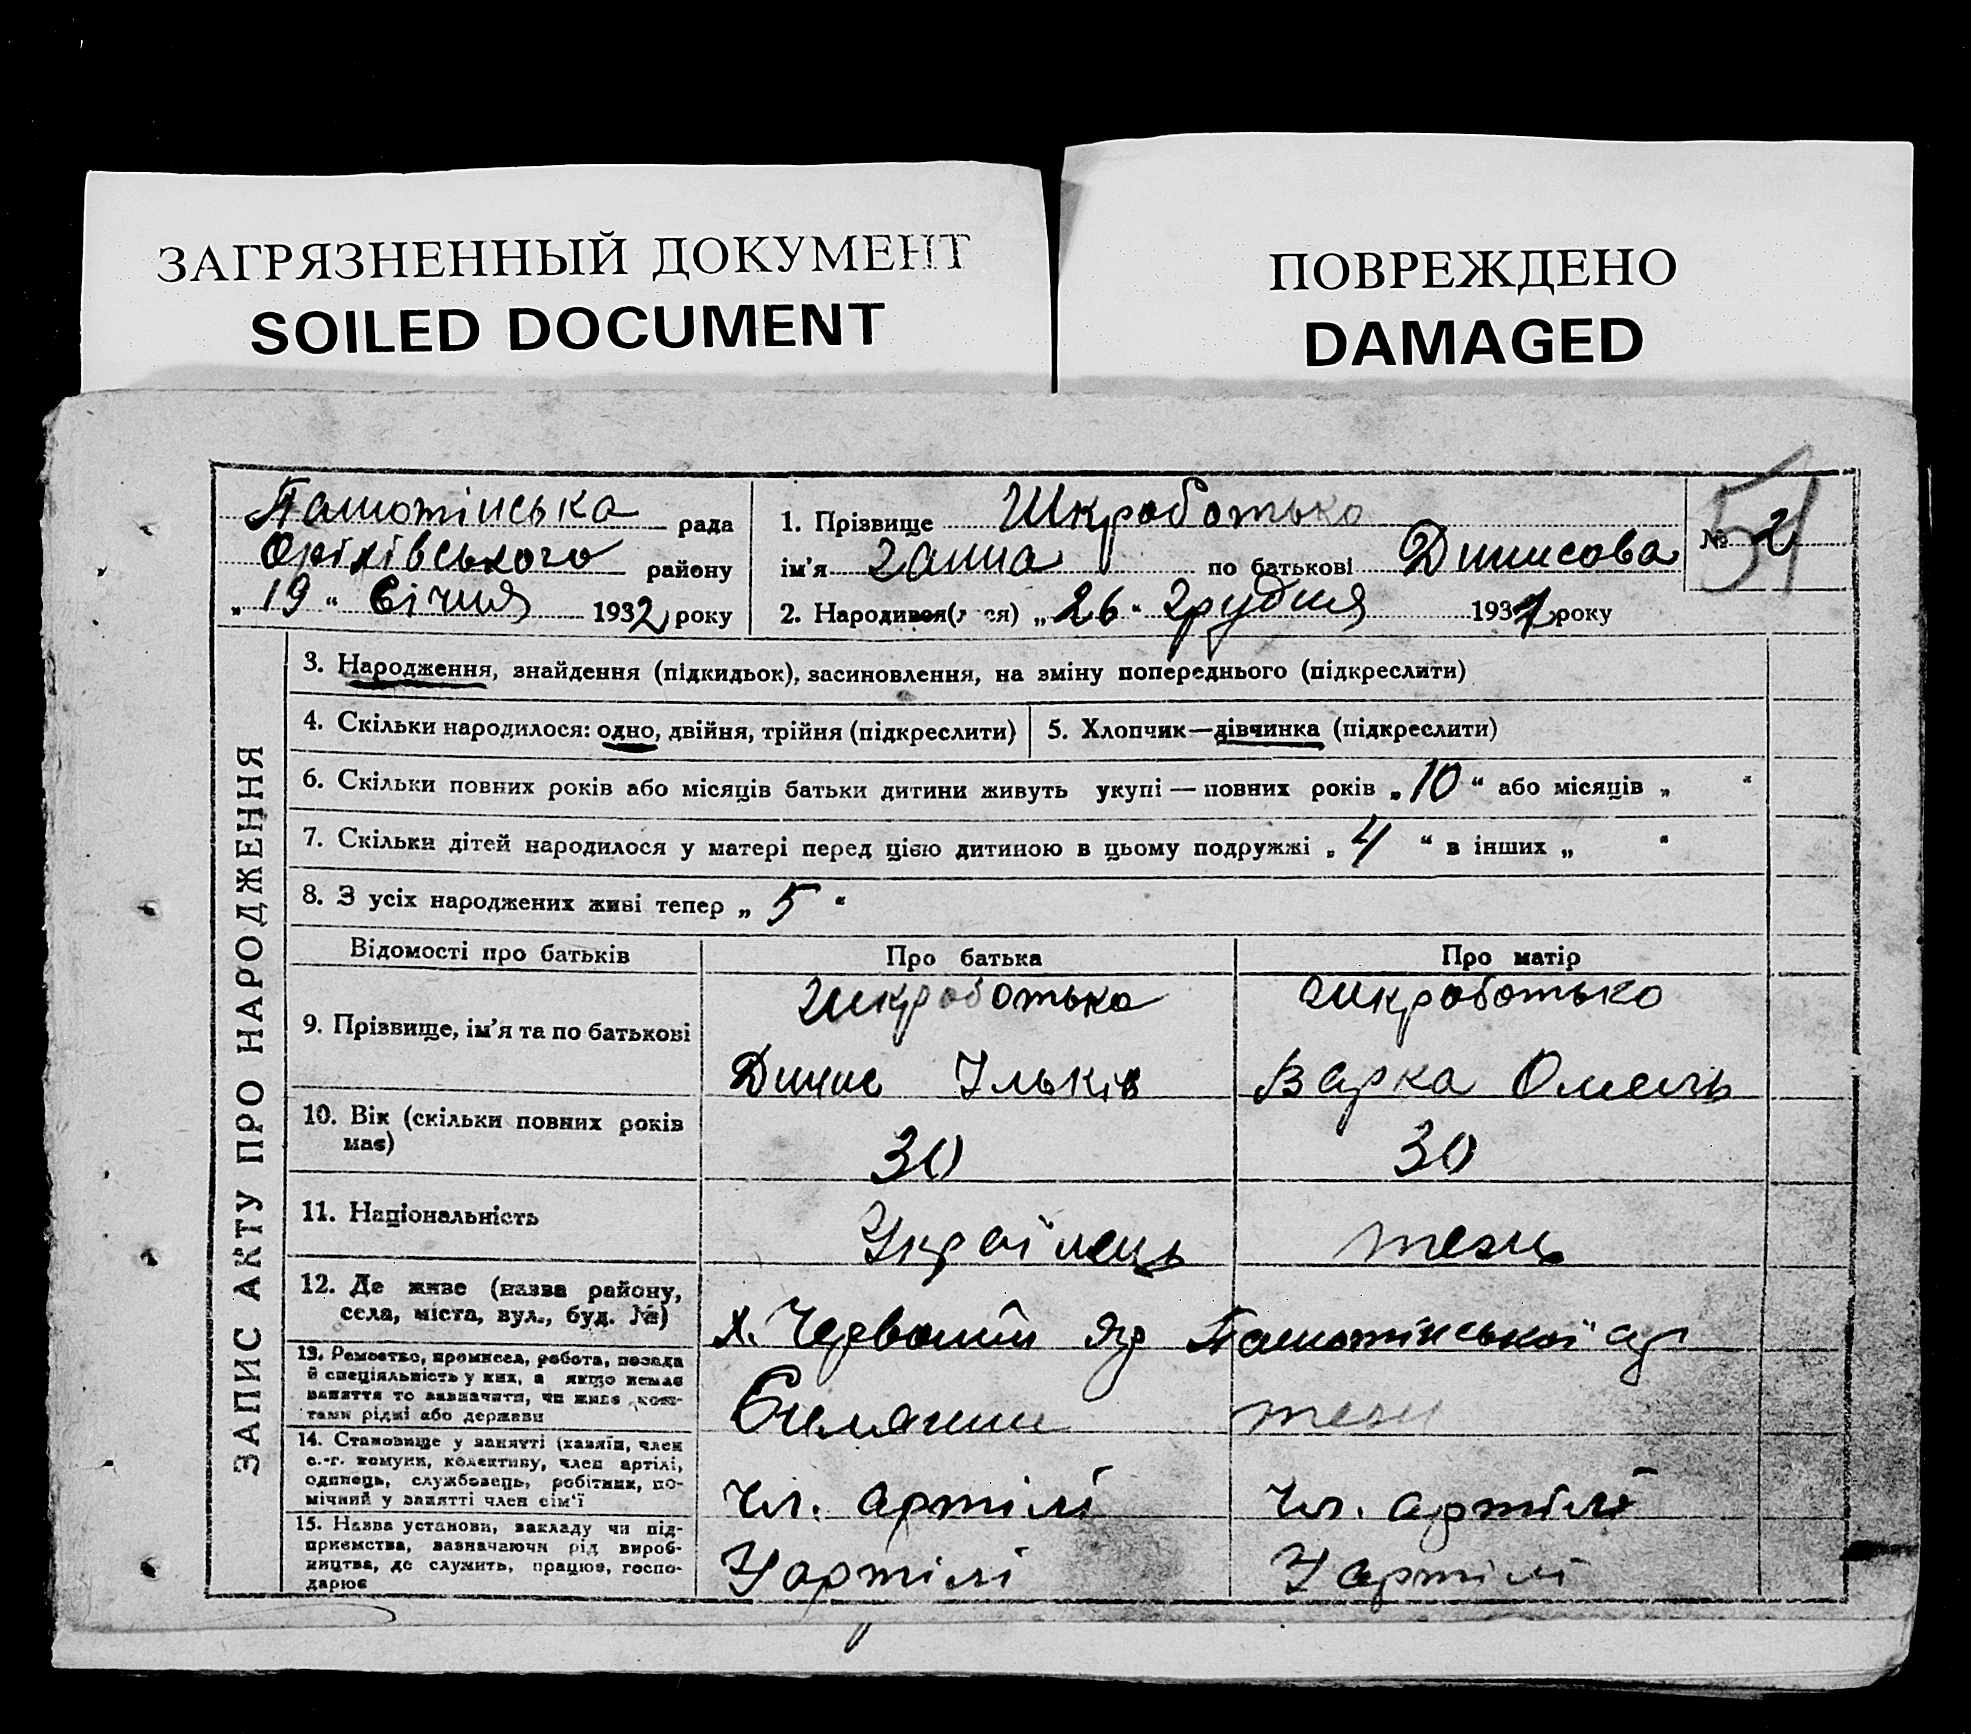 ЗАГРЯЗНЕННЫЙ ДОКУМЕНТ
SOILED DOCUMENT
ПОВРЕЖДЕНО
DAMAGED
рада
Оріхівського району
„19“ Січня 1932 року
1. Прізвище Шкроботько
ім'я Ганна по батькові Динисова
2. Народився(лася) „26“ Грудня 193 року
№ 2
51
ЗАПИС АКТУ ПРО НАРОДЖЕННЯ
3. Народження, знайдення (підкидьок), засиновлення, на зміну попереднього (підкреслити)
4. Скільки народилося: одно, двійня, трійня (підкреслити)
5. Хлопчик—дівчинка (підкреслити)
6. Скільки повних років або місяців батьки дитини живуть укупі — повних років „10“ або місяців „ “
7. Скільки дітей народилося у матері перед цією дитиною в цьому подружжі „4“ в інших „ “
8. З усіх народжених живі тепер „5“
Відомості про батьків
Про батька
Про матір
9. Прізвище, ім'я та по батькові
Шкроботько
Динис Ільків
Шкроботько
Варка Омелч
10. Вік (скільки повних років має)
30
30
11. Національність
Українець
тезн
12. Де живе (назва району, села, міста, вул., буд. №)
х. Червоний Яр
13. Ремество, промисел, робота, посада
й спеціяльність у них, а якщо немає
заняття то зазначити, чи живе кош-
тами рідні або держави
Силянин
тезн
14. Становище у занятті (хазяїн, член
с.-г. комуни, колективу, член артілі,
одинець, службовець, робітник, по-
мічний у занятті член сім'ї
Чл. артілі
Чл. артілі
15. Назва установи, закладу чи під-
приємства, зазначаючи рід вироб-
ництва, де служить, працює, госпо-
дарює
У артілі
У артілі